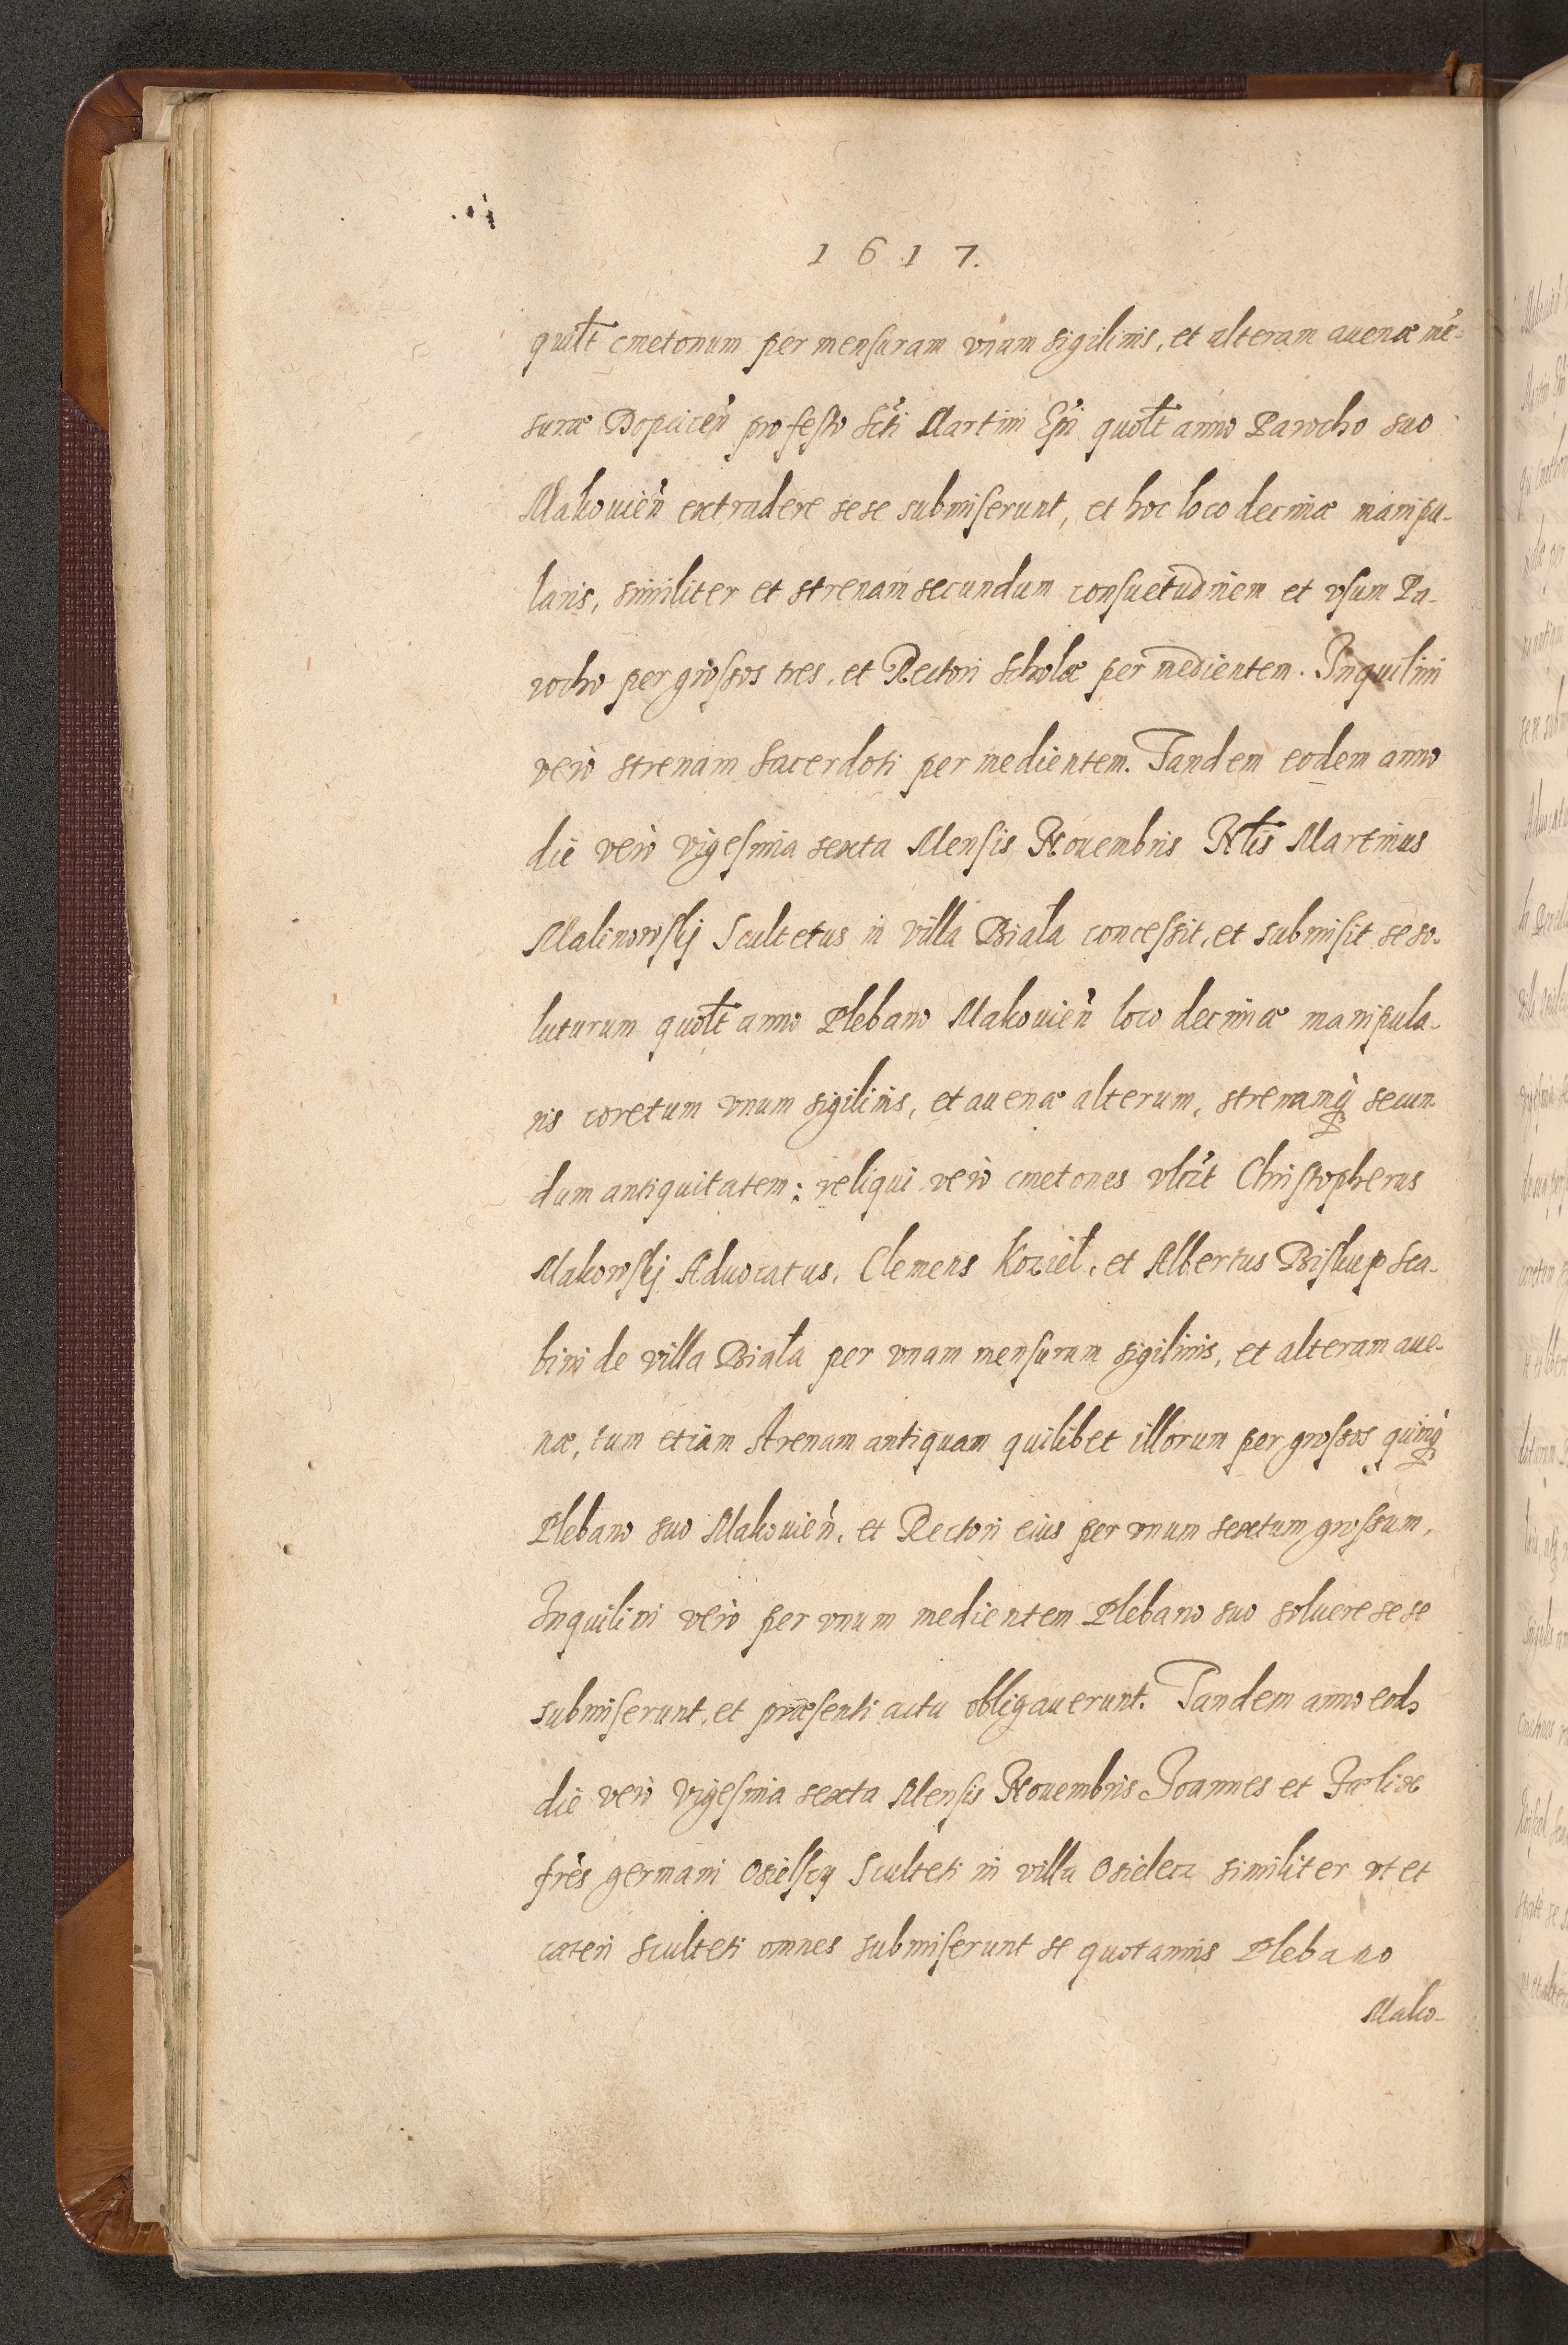 1617.
quilt cmetonum per mensuram vnam sigilinis, et alteram auenæ mē-
suræ Dopcicen̄ pro festo Scti Martini Epi quolt anno Parocho suo
Makouien̄ extradere sese submiserunt, et hoc loco decimæ manipu-
laris, similiter et strenam secundum consuetudinem et vsum Pa-
rocho per grossos tres, et Rectori Scholæ per medientem. Inquilini
vero strenam Sacerdoti per medientem. Tandem eodem anno
die vero vigesima sexta Mensis Nouembris Nlis Martinus
Malinowskj Scultetus in villa Biała concessit, et submisit se so-
luturum quolt anno Plebano Makouien̄ loco decimæ manipula-
ris coretum vnum sigilinis, et auenæ alterum, strenamq̃ secun-
dum antiquitatem: reliqui vero cmetones vlzt Christopherus
Makowskj Aduocatus, Clemens Kozieł, et Albertus Biskup Sca-
bini de villa Biała per vnam mensuram sigilinis, et alteram aue-
næ, tum etiam strenam antiquam quilibet illorum per grossos quinq̃
Plebano suo Makouien̄, et Rectori eius per vnum sextum grossum,
Inquilini vero per vnum medientem Plebano suo soluere sese
submiserunt, et præsenti actu obligauerunt. Tandem anno eod.
die vero vigesima sexta Mensis Nouembris Joannes et Fœlix
frēs germani Osielscy Sculteti in villa Osielecz similiter vt et
cæteri sculteti omnes submiserunt se quotannis Plebano
Mako-